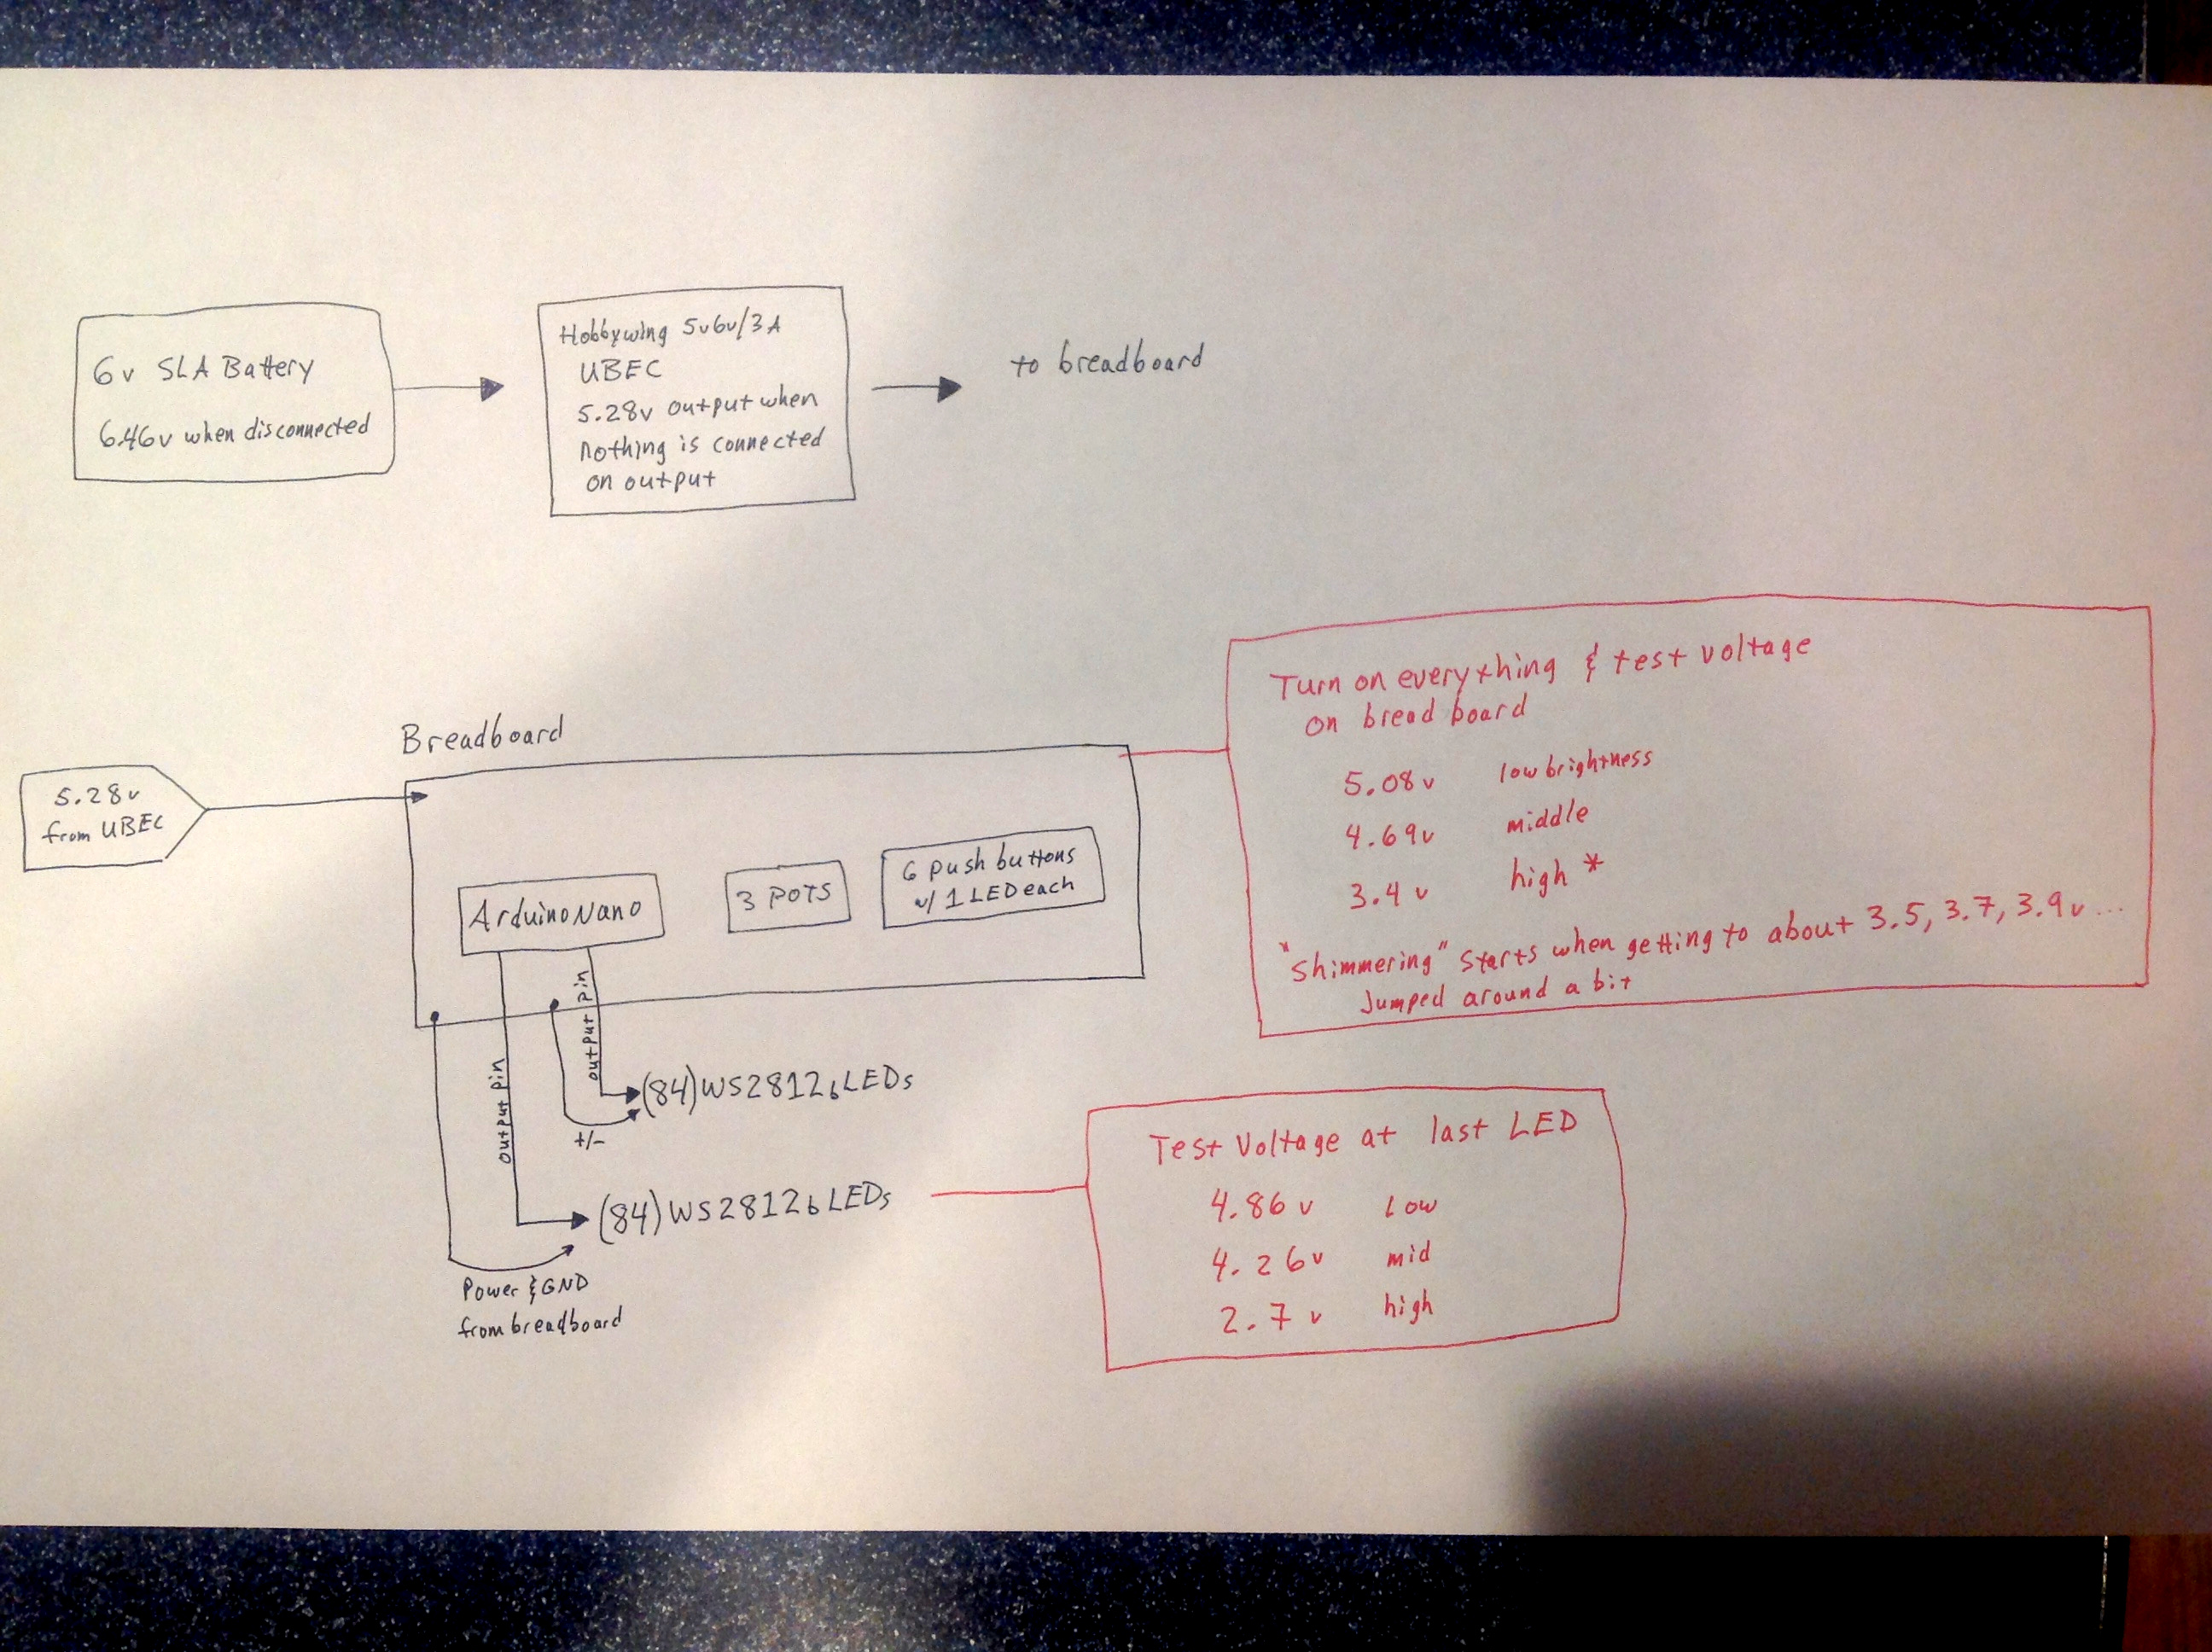 6v SLA Battery
6.46v when disconnected
Hobbywing 5v6v/3A
UBEC
5.28v output when
nothing is connected
on output
to breadboard
Breadboard
5.28v
from UBEC
Arduino Nano
3 POTS
6 push buttons
w/ 1 LED each
output pin
output pin
(84) WS2812b LEDs
+/-
(84) WS2812b LEDs
Power & GND
from breadboard
Turn on everything & test voltage
on bread board
5.08v low brightness
4.69v middle
3.4v high *
* "Shimmering" starts when getting to about 3.5, 3.7, 3.9v...
Jumped around a bit
Test Voltage at last LED
4.86v Low
4.26v mid
2.7v high